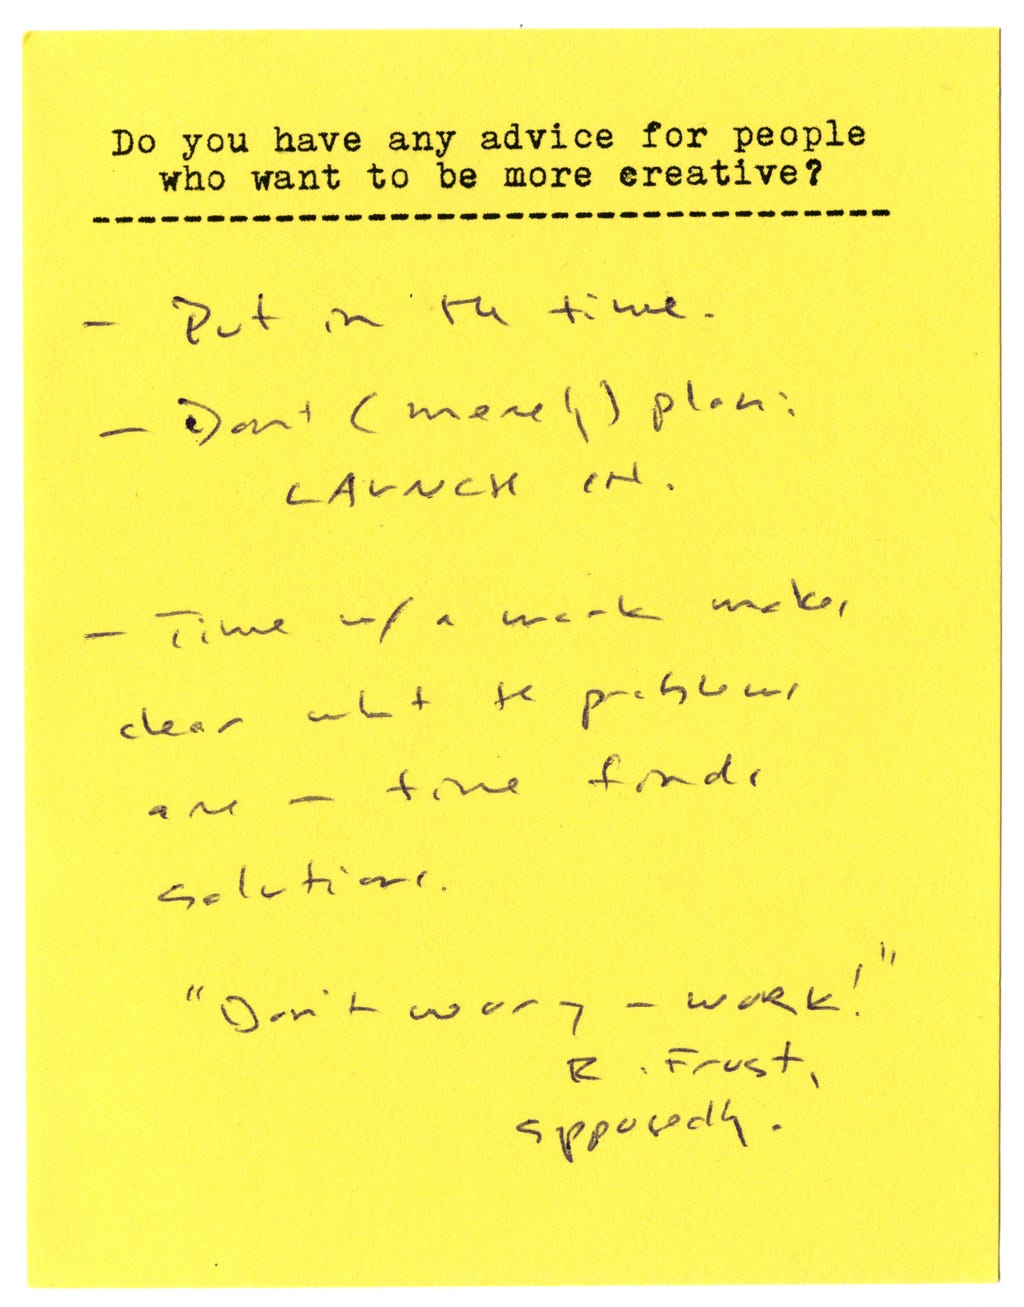 Do you have any advice for people
who want to be more creative?
- Put in the time.
- Don't (merely) plan:
LAUNCH IN.
- Time w/ a work makes
clear what the problems
are - time finds
solutions.
"Don't worry - WORK!"
R. Frost,
spposedly.